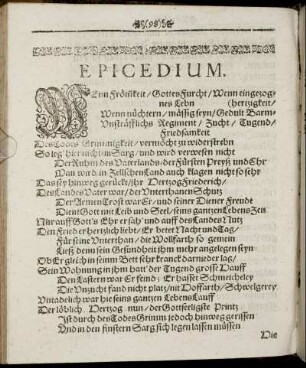 EPICEDIUM.
WEnn Frömkeit / Gottes Furcht / Wenn eingezog-
nes Lebn (hertzigkeit /
Wenn nüchtern / mässig seyn / Gedult Barm-
Vnsträfflichs Regiment / Zucht / Tugend /
Friedsamkeit
Des Todes Grimmigkeit / vermöcht zu widerstrebn
So leg hier nicht im Sarg / und würd verwesen nicht
Der Ruhm des Vaterlands / der Fürsten Preyß und Ehr
Man würd in Zellschen Land auch klagen nicht so sehr
Das sey hinweg gerückt / ihr Hertzog Friederich /
Des Landes Vater war / der Unterthanen Schutz
Der Armen Trost war Er / und seiner Diener Freund
Dient Gott mit Leib und Seel / seins gantzen Lebens Zeit
Nur auff Gott's Ehr er sah / und auff des Landes Nutz
Den Fried er hertzlich liebt / Er betet Nacht und Tag /
Für seine Unterthan / der Wolfarth so gemein
Ließ denn sein Gesundheit ihm mehr angelegen seyn
Ob Er gleich in seinm Bett sehr kranck darnieder lag /
Sein Wohnung in ihm hatt' der Tugend grosse Hauff
Den Lastern war Er feind / Er hasset Schmeicheley
Die Unzucht fand nicht platz / nit Hoffarth / Schwelgerey
Untadelich war hie seins gantzen Lebens Lauff
Der löblich Hertzog nun / der Gottseeligste Printz
Ist durch des Todes Grimm jedoch hinweg gerissen
Und in den finstern Sarg sich legen lassen müssen
Die